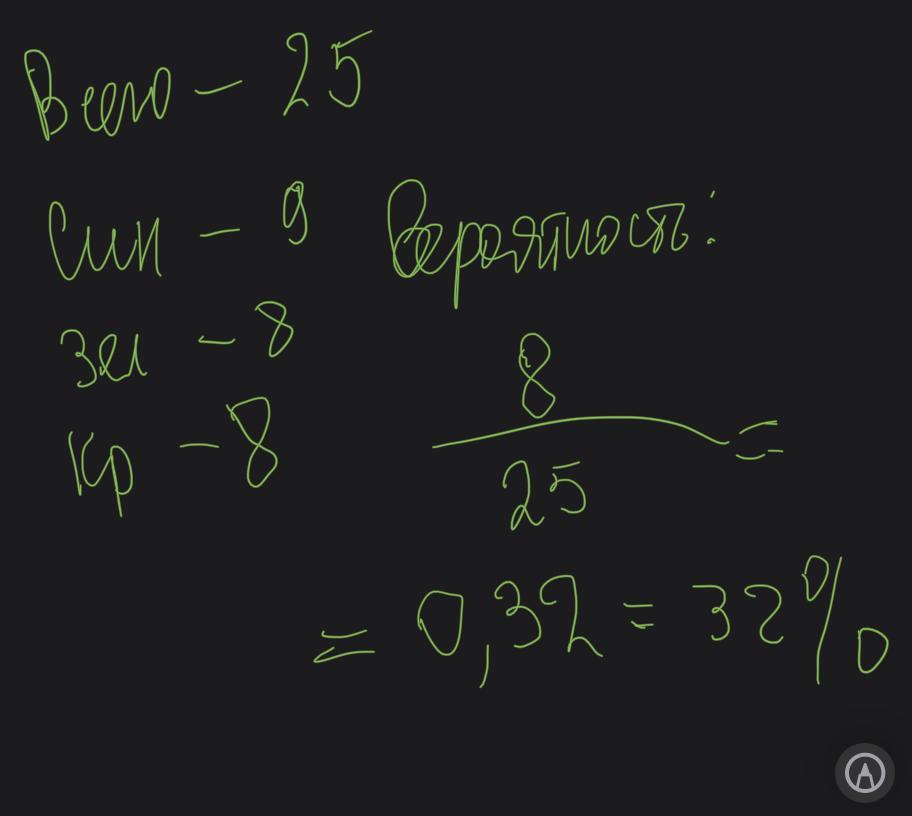 Всего - 25
Син - 9 Вероятность:
Зел - 8
Кр - 8
8
25 =
= 0,32 = 32%